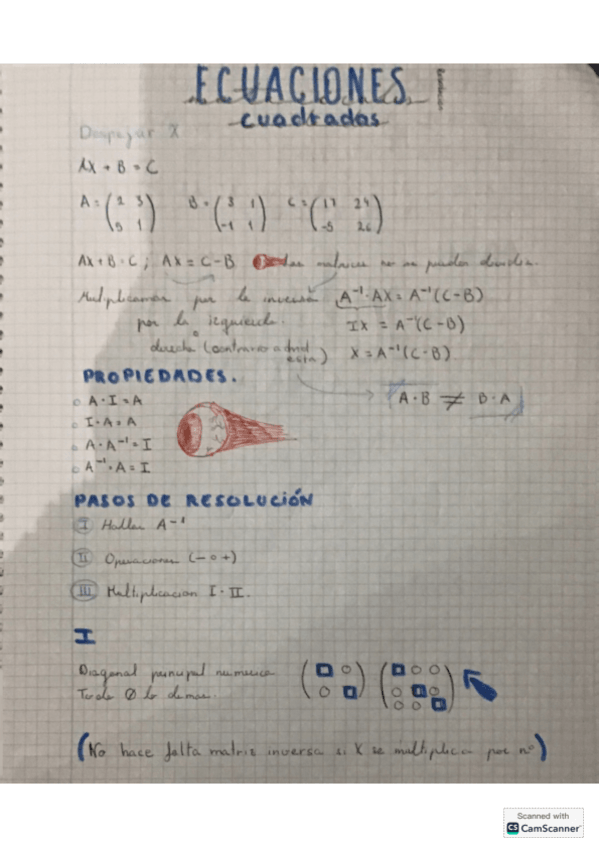 ECUACIONES
cuadradas
Despejar X
AX + B = C
A = ( 2 3 / 5 1 ) B = ( 3 1 / -1 1 ) C = ( 17 24 / -5 26 )
AX + B = C ; AX = C - B las matrices no se pueden dividir.
Multiplicamos por la inversa A⁻¹·AX = A⁻¹(C-B)
por la izquierda. IX = A⁻¹(C-B)
derecha (contrario a donde está) X = A⁻¹(C-B)
PROPIEDADES.
A·B ≠ B·A
A·I = A
I·A = A
A·A⁻¹ = I
A⁻¹·A = I
PASOS DE RESOLUCIÓN
I Hallar A⁻¹
II Operaciones (- o +)
III Multiplicacion I·II.
I
Diagonal principal numerica
Todo 0 lo demas.
(No hace falta matriz inversa si X se multiplica por nº)
Scanned with
CS CamScanner